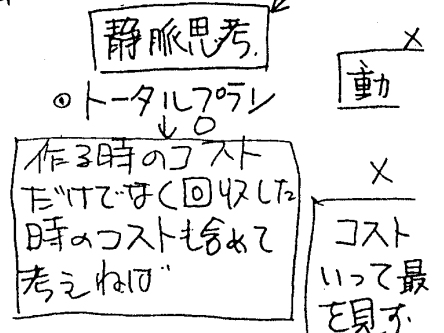 静脈思考.
◎ トータルプラン
↓ ○
作る時のコスト
だけでなく回収した
時のコストも含めて
考えねば
×
動
×
コスト
いって最
を見す.